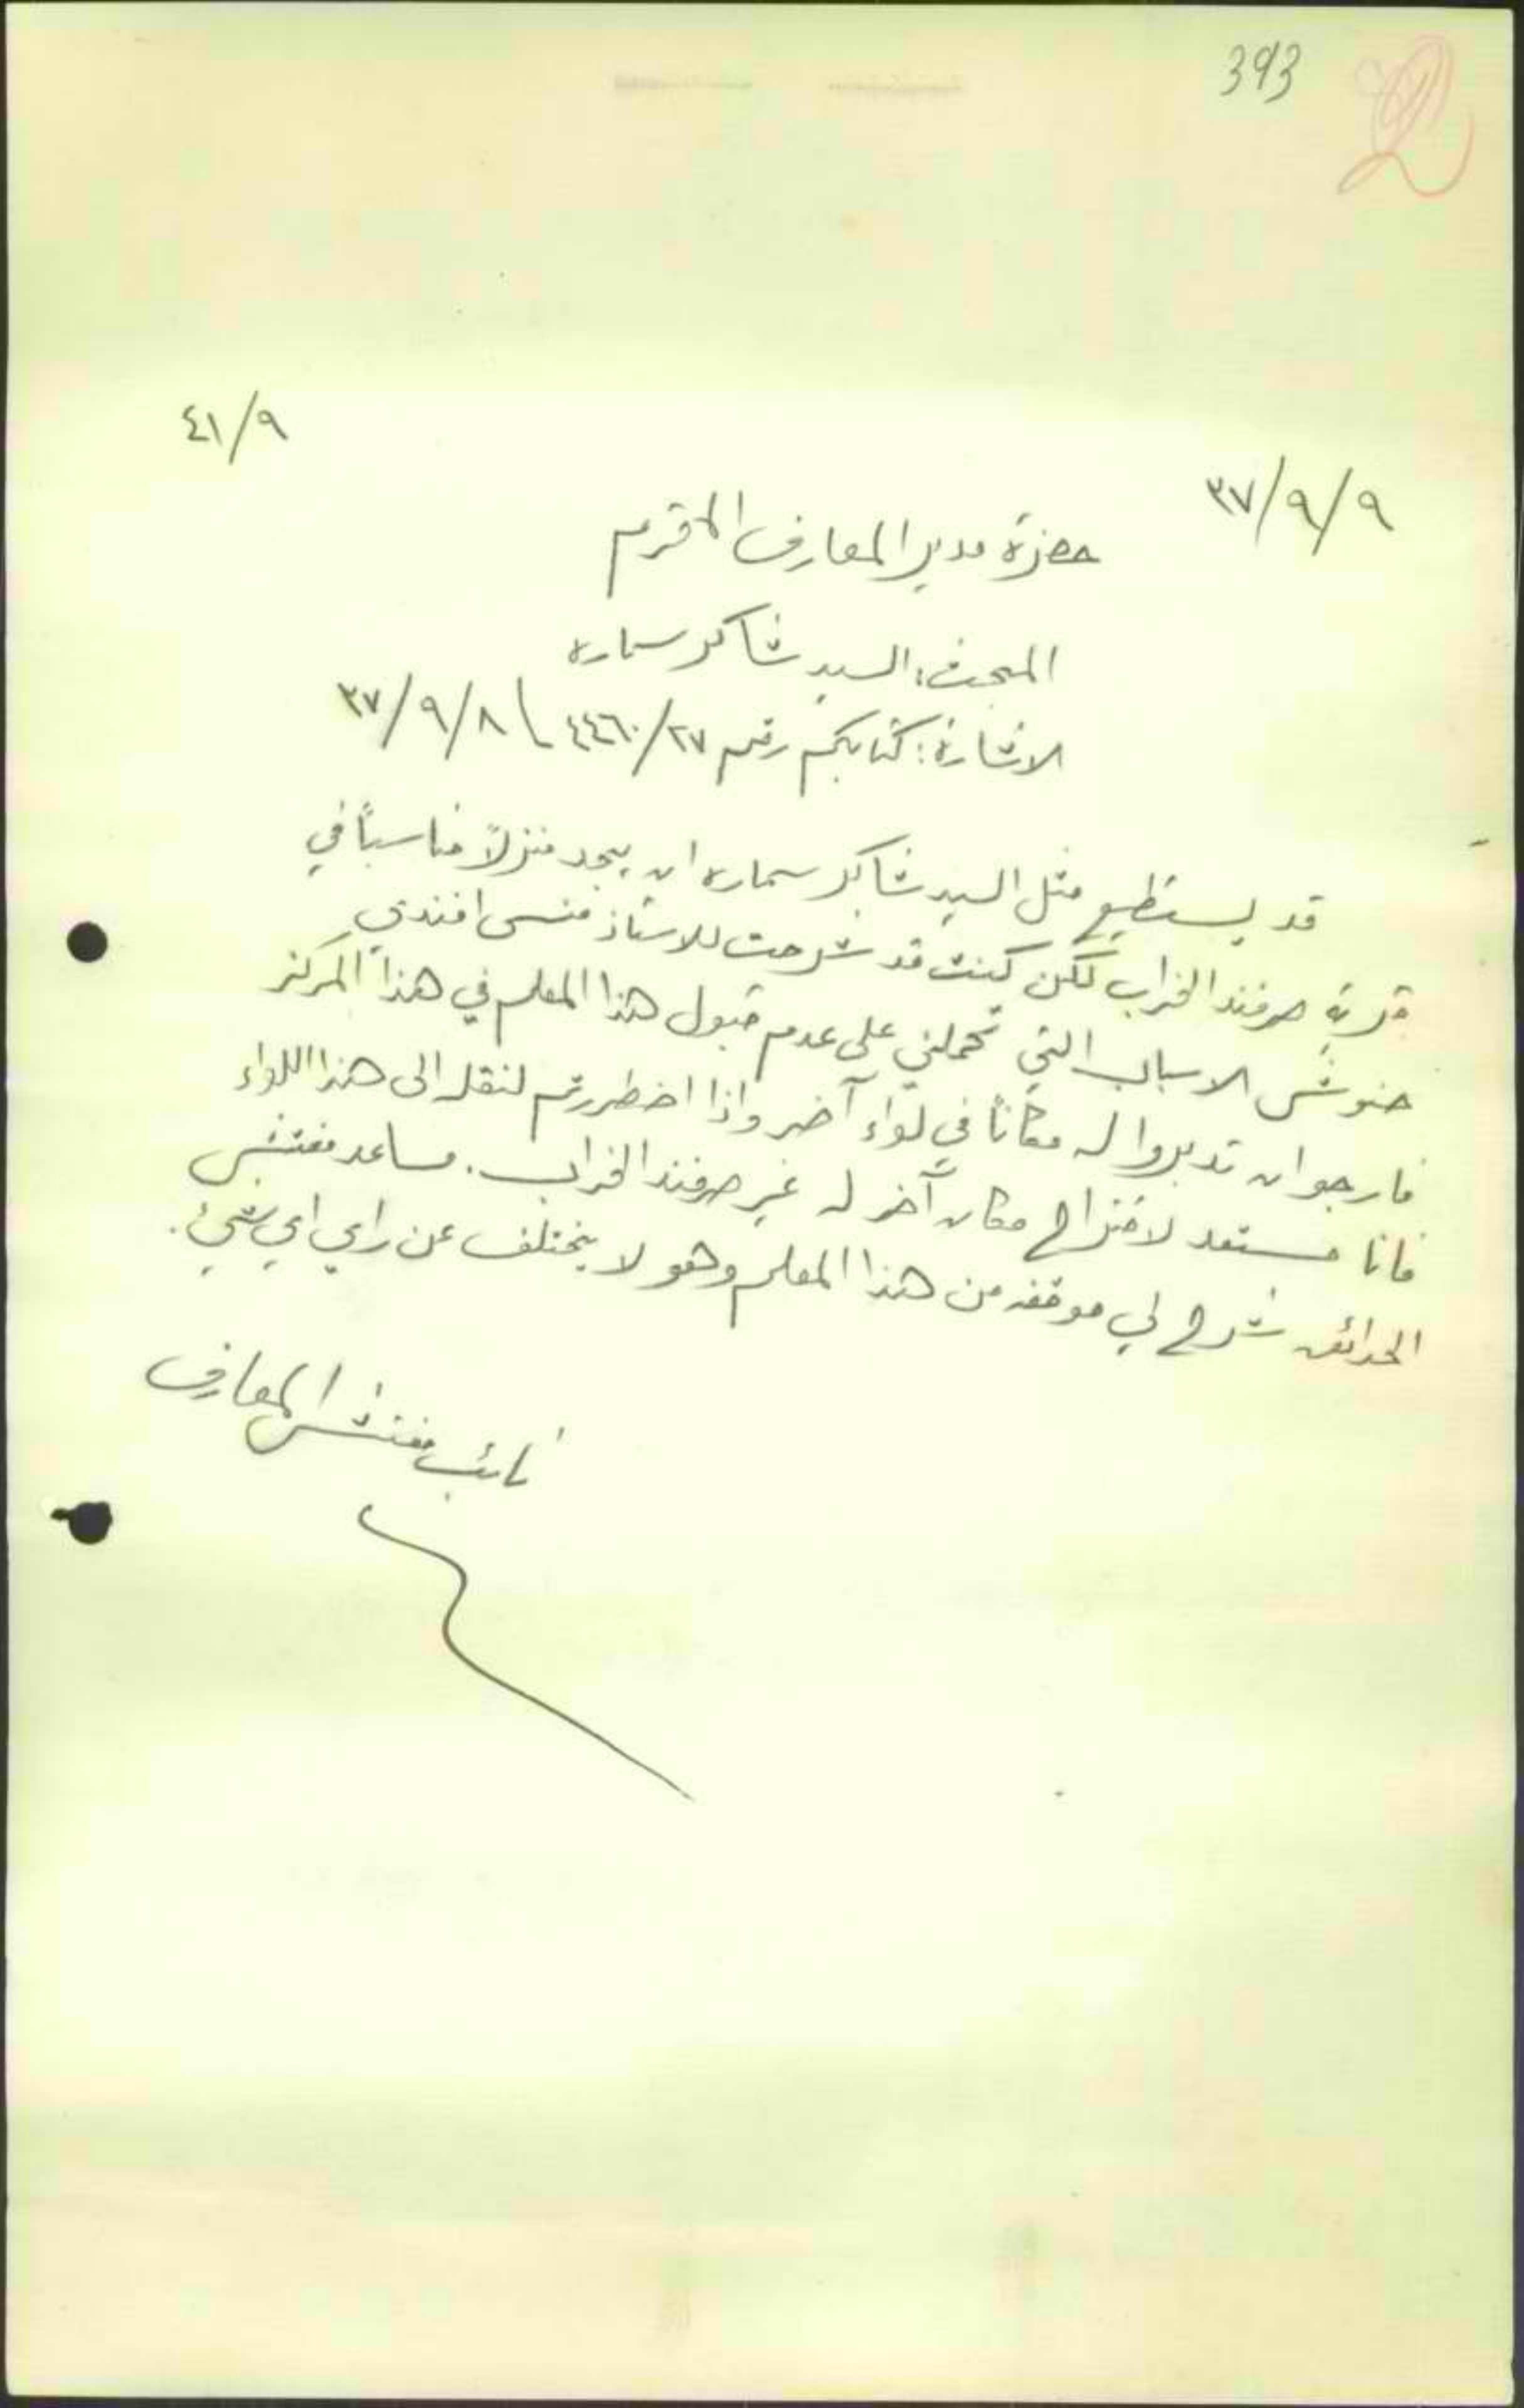 393
٤١/٩
٣٧/٩/٩
حضرة مدير المعارف المحترم
المبحث: السيد شاكر سماره
الاشارة: كتابكم رقم ٤٤٦٠/٢٧ ٣٧/٩/٨
قد يستطيع مثل السيد شاكر سماره ان يجد منزلاً مناسباً في
قرية صرفند الخراب لكن كنت قد شرحت للاستاذ منسى افندي
حنوش الاسباب التي تحملني على عدم قبول هذا المعلم في هذا المركز
فارجو ان تدبروا له مكاناً في لواء آخر واذا اضطررتم لنقله الى هذا اللواء
فانا مستعد لاقتراح مكان آخر له غير صرفند الخراب. مساعد مفتش
الحدائق شرح لي موقفه من هذا المعلم وهو لا يختلف عن رايي اي شيء.
نائب مفتش المعارف